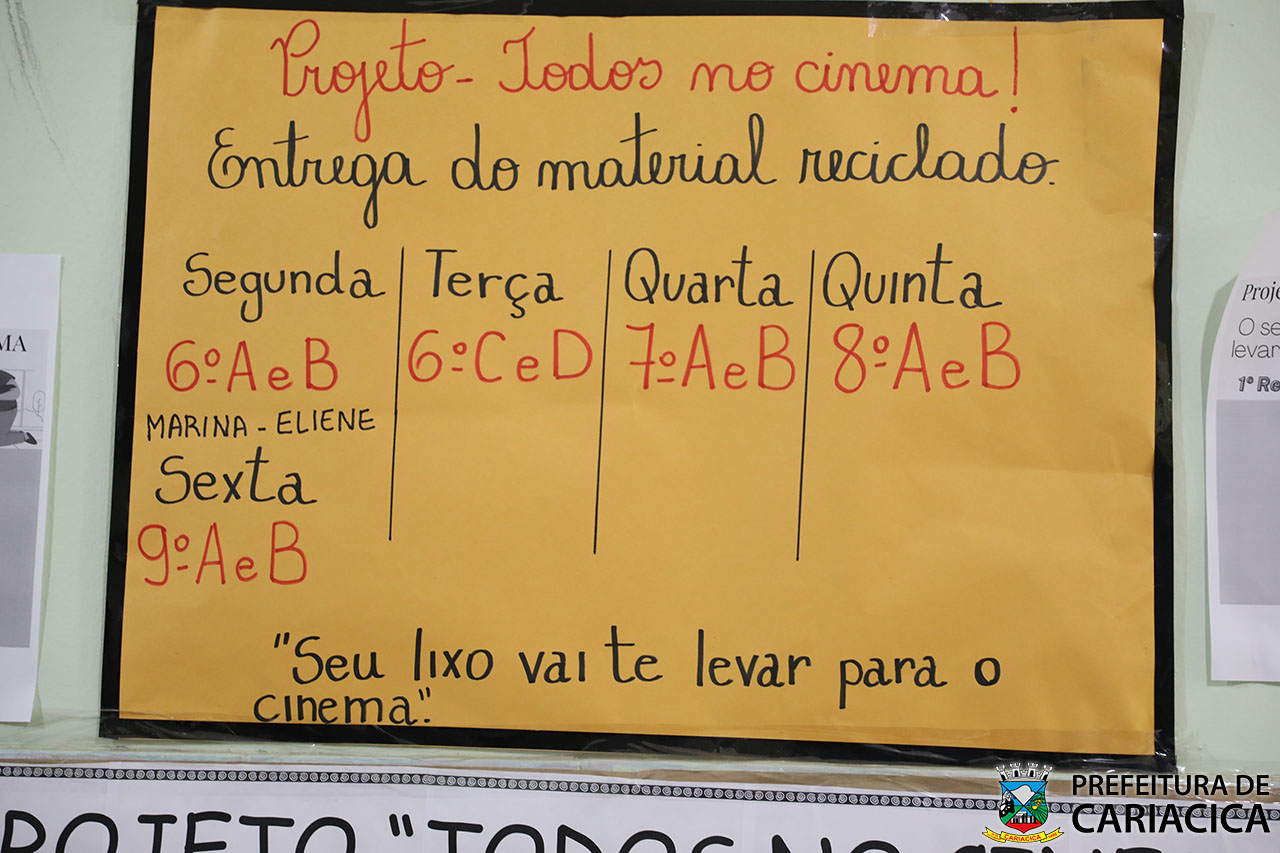 Projeto - Todos no cinema!
Entrega do material reciclado.
Segunda
6º A e B
MARINA - ELIENE
Sexta
9º A e B
Terça
6º C e D
Quarta
7º A e B
Quinta
8º A e B
"Seu lixo vai te levar para o
cinema".
MA
Proje
O se
levar
1º Re
PROJETO "TODOS NO CINE
PREFEITURA DE
CARIACICA
CARIACICA